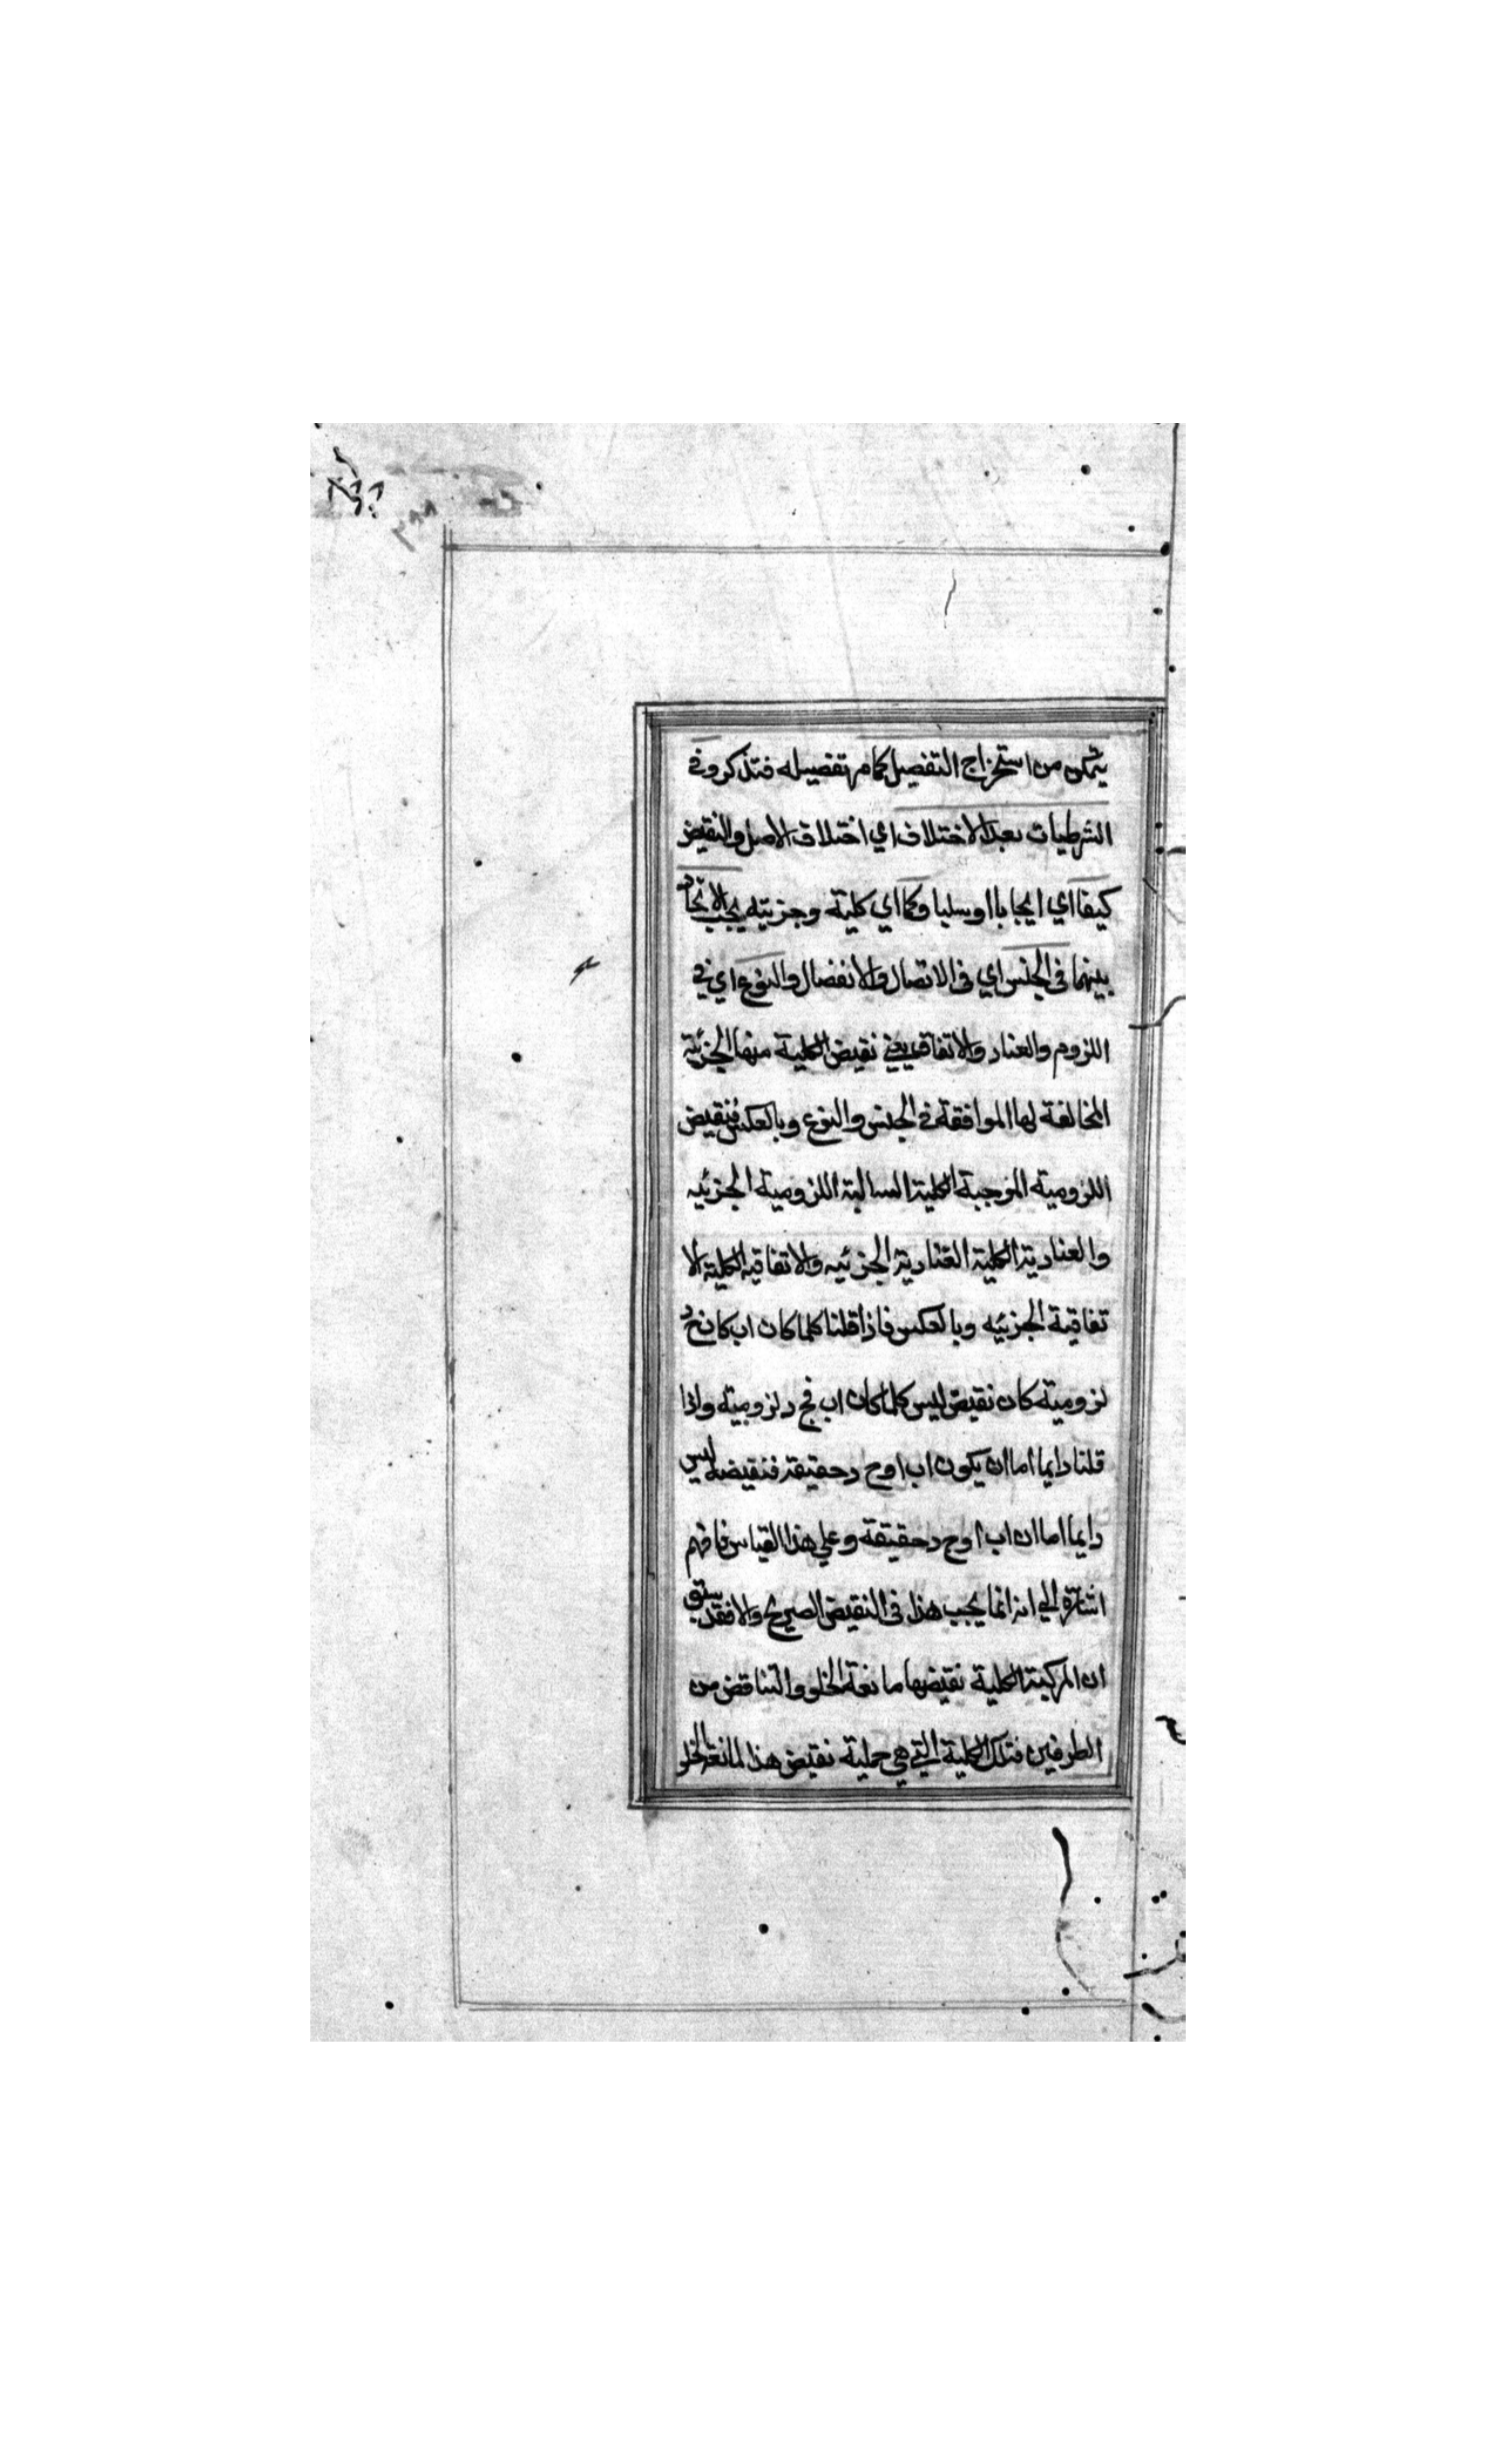 يتمكن من استخراج التفصيل كما مر تفصيله فتذكر وفي
الشرطيات بعد الاختلاف اي اختلاف الاصل والنقيض
كيفا اي ايجابا او سلبا وكما اي كلية وجزيته يجب الاتحاد
بينهما في الجنس اي في الاتصال والانفصال والنوع اي في
اللزوم والعناد والاتفاق يعني نقيض الكلية منها الجزئية
المخالفة لها الموافقة في الجنس والنوع وبالعكس فنقيض
اللزومية الموجبة الكلية السالبة اللزومية الجزئيه
والعنادية الكلية العنادية الجزئيه والاتفاقيه الكلية الا
تفاقية الجزئيه وبالعكس فاذا قلنا كلما كان اب كان ج د
لزومية كان نقيض ليس كلما كان اب فج د لزومية واذا
قلنا دايما اما ان يكون اب او ج د حقيقة فنقيضه ليس
دايما اما ان اب او ج د حقيقة وعلي هذا القياس فافهم
اشارة الي انه انما يجب هذا في النقيض الصريح والا فقد سبق
ان المركبة الكلية نقيضها مانعة الخلو والتناقض من
الطرفين فتلك الكلية التي هي حملية نقيض هذا المانعة الخلو